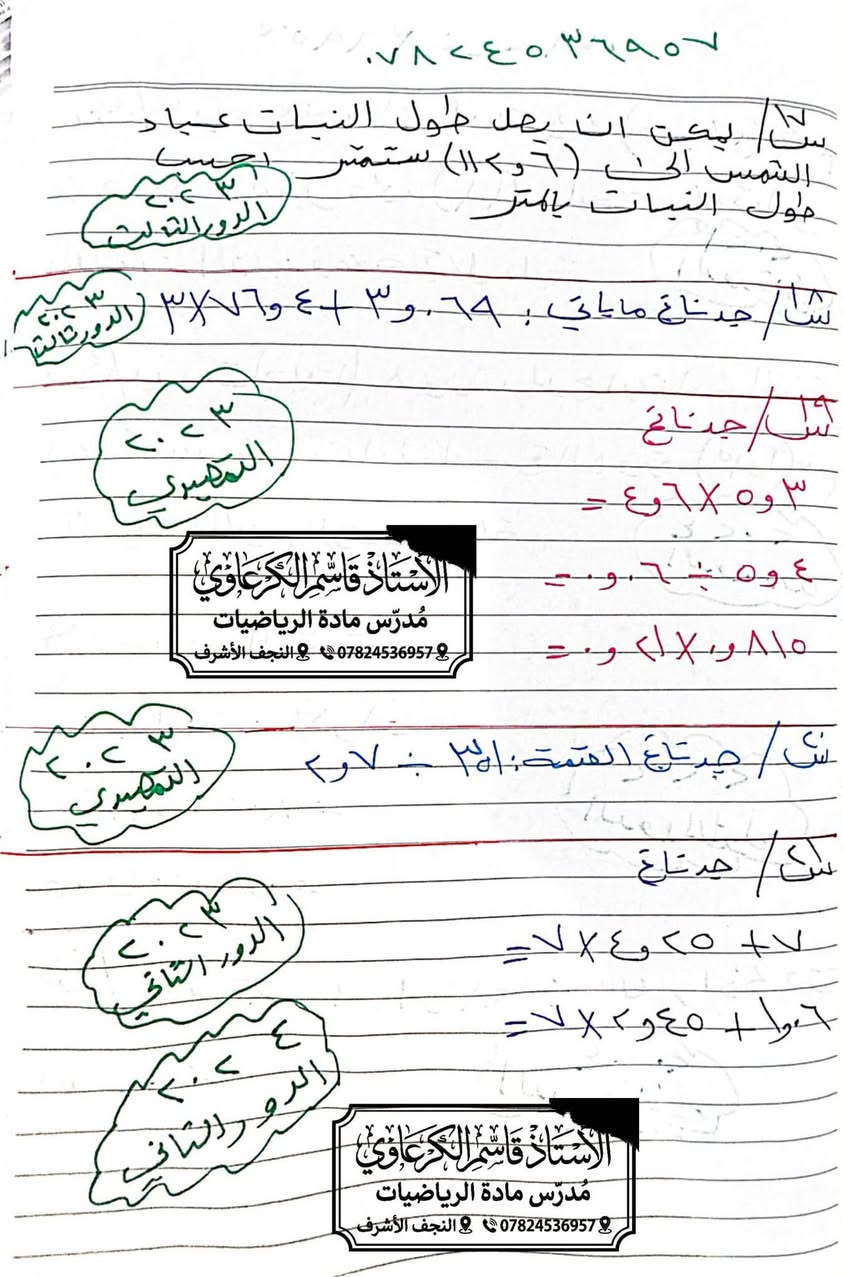 ٠٧٨٢٤٥٣٦٩٥٧
س١٧/ يمكن ان يصل طول النبات عباد
الشمس الى (٦و١١٢) سنتمتر احسب
طول النبات بالمتر
٢٠٢٣
الدور الثالث
س١٨/ جد ناتج ماياتي : ٠٦٩و٣ + ٤و٧٦×٣
٢٠٢٣
الدور ثالث
س١٩/ جد ناتج
٣و٥ × ٦و٤ =
٤و٥ ÷ ٠٦و٠ =
٨١٥و٠ × ٢١و٠ =
٢٠٢٣
التمهيدي
الأستاذ قاسم الكرعاوي
مُدرّس مادة الرياضيات
07824536957 النجف الأشرف
س٢٠/ جد ناتج القسمة: ٣٥١ ÷ ٧و٢
٢٠٢٣
التمهيدي
س٢١/ جد ناتج
٧ + ٢٥و٤ × ٧ =
٢٠٢٣
الدور الثاني
٠٦و١ + ٤٥و٢ × ٧ =
٢٠٢٤
الدور الثاني
الأستاذ قاسم الكرعاوي
مُدرّس مادة الرياضيات
07824536957 النجف الأشرف